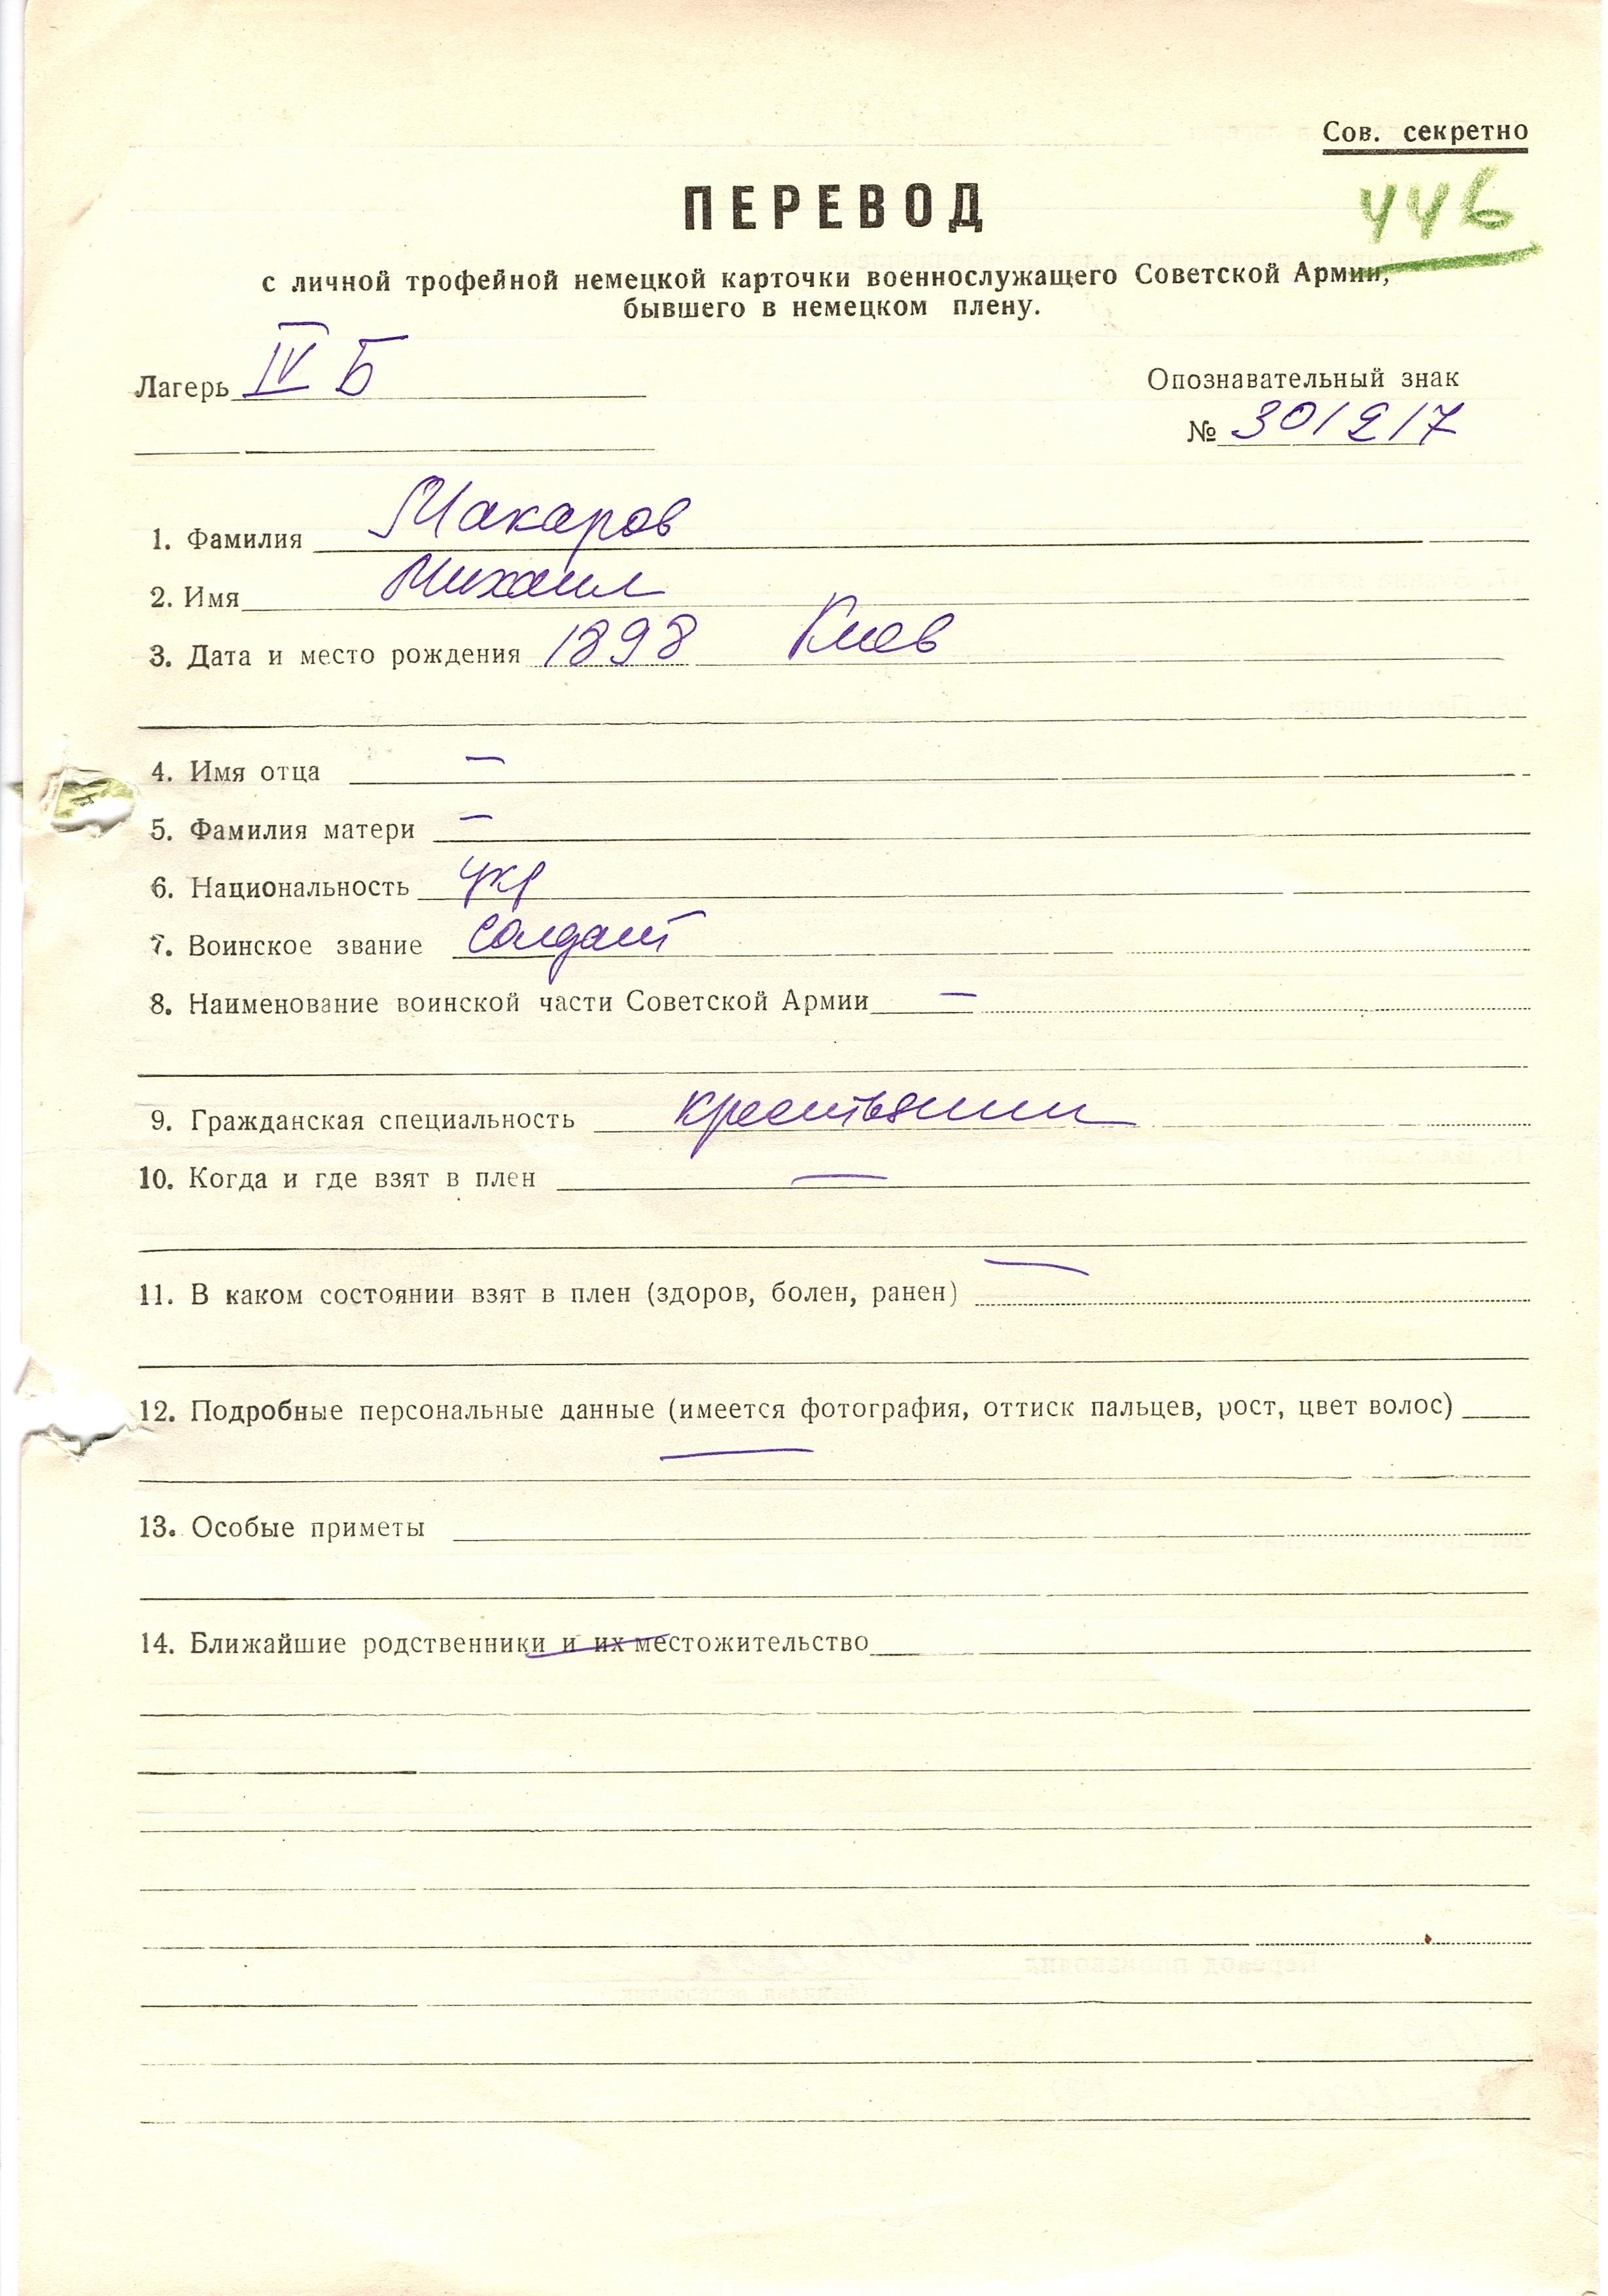 Сов. секретно
446
ПЕРЕВОД
с личной трофейной немецкой карточки военнослужащего Советской Армии,
бывшего в немецком плену.
Лагерь IV Б
Опознавательный знак
№ 301217
1. Фамилия Макаров
2. Имя Михаил
3. Дата и место рождения 1898 Киев
4. Имя отца —
5. Фамилия матери —
6. Национальность укр
7. Воинское звание солдат
8. Наименование воинской части Советской Армии —
9. Гражданская специальность крестьянин
10. Когда и где взят в плен —
11. В каком состоянии взят в плен (здоров, болен, ранен) —
12. Подробные персональные данные (имеется фотография, оттиск пальцев, рост, цвет волос)
—
13. Особые приметы
14. Ближайшие родственники и их местожительство